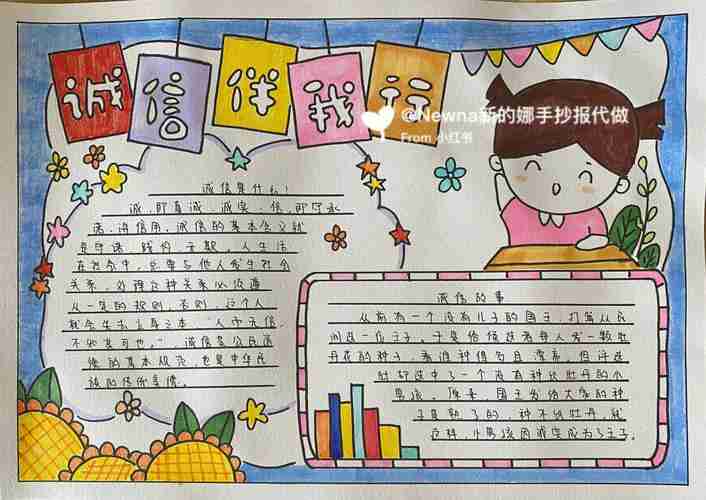 诚信伴我行
@Newna新的娜手抄报代做
From 小红书
诚信是什么！
诚，即真诚、诚实；信，即守承
诺、讲信用。诚信的基本含义就
是守诺、践约、无欺。人生活
在社会中，总要与他人发生社会
关系，处理这种关系必须遵
从一定的规则，否则，这个人
就会失去立身之本，“人而无信，
不知其可也。”诚信是公民道
德的基本规范，也是中华民
族的传统美德。
诚信故事
从前有一个没有儿子的国王，打算从民
间选一位王子。于是给候选者每人发一颗牡
丹花的种子，看谁种得多且漂亮。但评选
时却选中了一个没有种出牡丹的小
男孩。原来，国王发给大家的种
子是熟了的，种不出牡丹，就
这样，小男孩因诚实成为了王子。